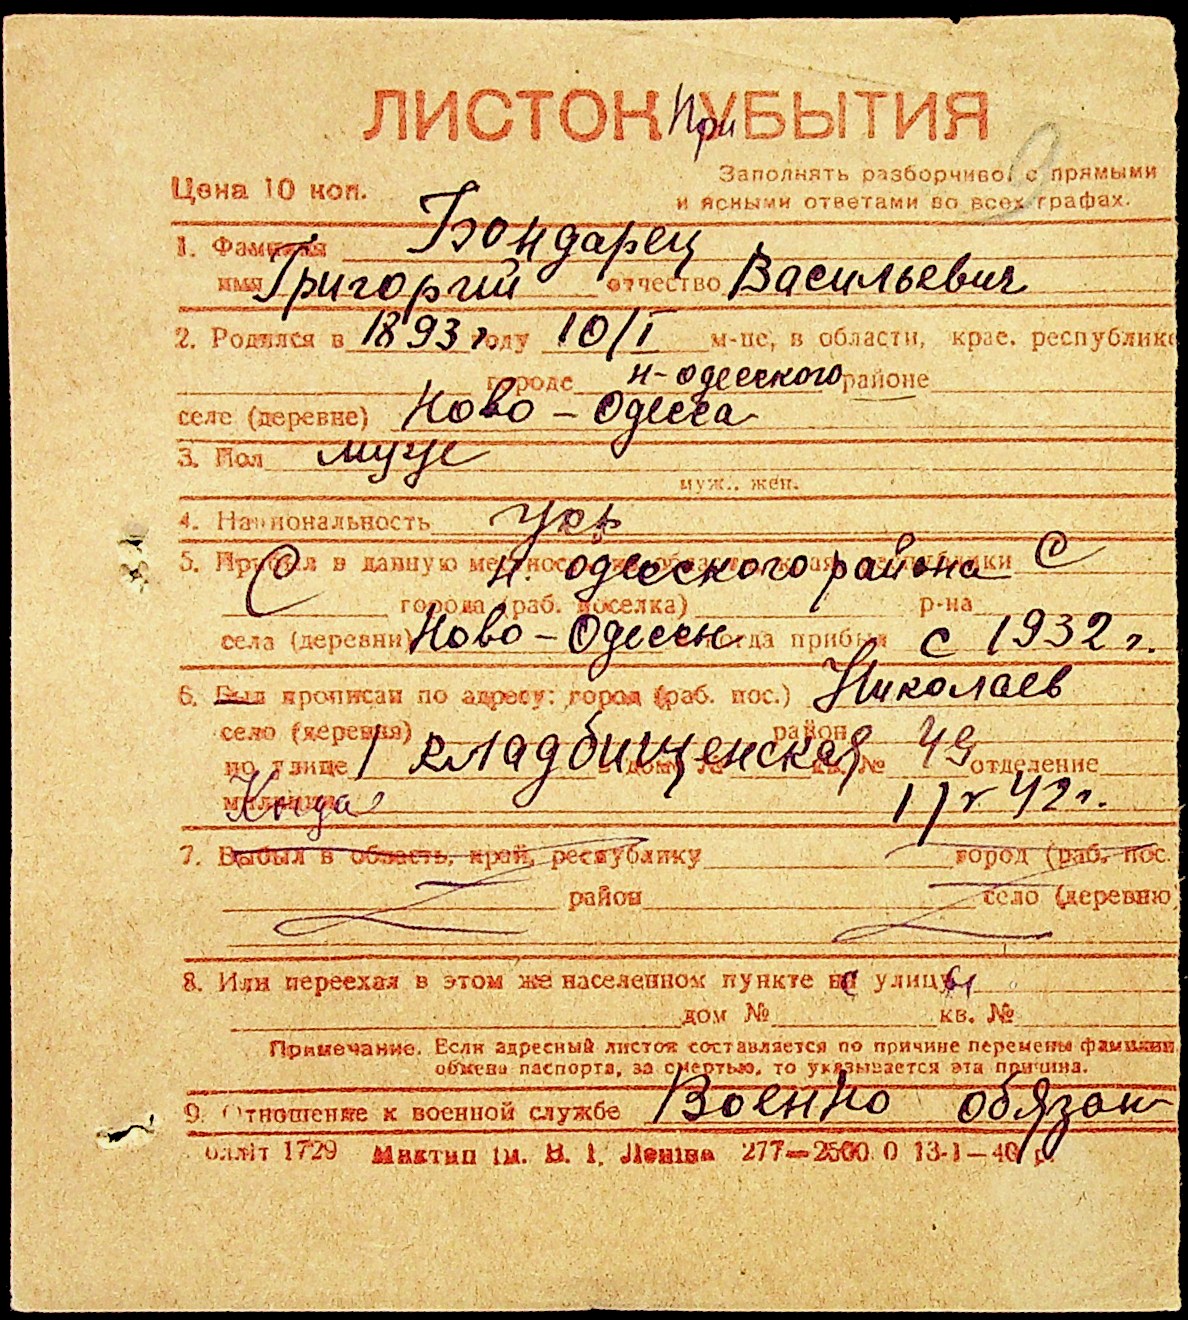 ЛИСТОК При УБЫТИЯ
Цена 10 коп.
Заполнять разборчиво, с прямыми
и ясными ответами во всех графах.
1. Фамилия Бондарец
имя Григорий отчество Васильевич
2. Родился в 1893 г. году 10/I м-це, в области, крае. республике
городе Н-Одесского районе
селе (деревне) Ново-Одесса
3. Пол муж
муж., жен.
4. Национальность укр
5. Прибыл в данную Н. Одесского района С
С города (раб. поселка) р-на
села (деревни) Ново-Одессы когда прибыл с 1932 г.
6. Был прописан по адресу: город (раб. пос.) Николаев
село (деревня) район
по улице 1 кладбищенская 49 отделение
милиции Когда 1 42 г.
7. Выбыл в область, край, республику город (раб. пос.
район село (деревню)
8. Или переехал в этом же населенном пункте с улицы
дом № кв. №
Примечание. Если адресный листок составляется по причине перемены фамилии,
обмена паспорта, за смертью, то указывается эта причина.
9. Отношение к военной службе Военно обязан
олліт 1729 Миктип ім. В. І. Леніна 277—2500 0 13-1—40 р.